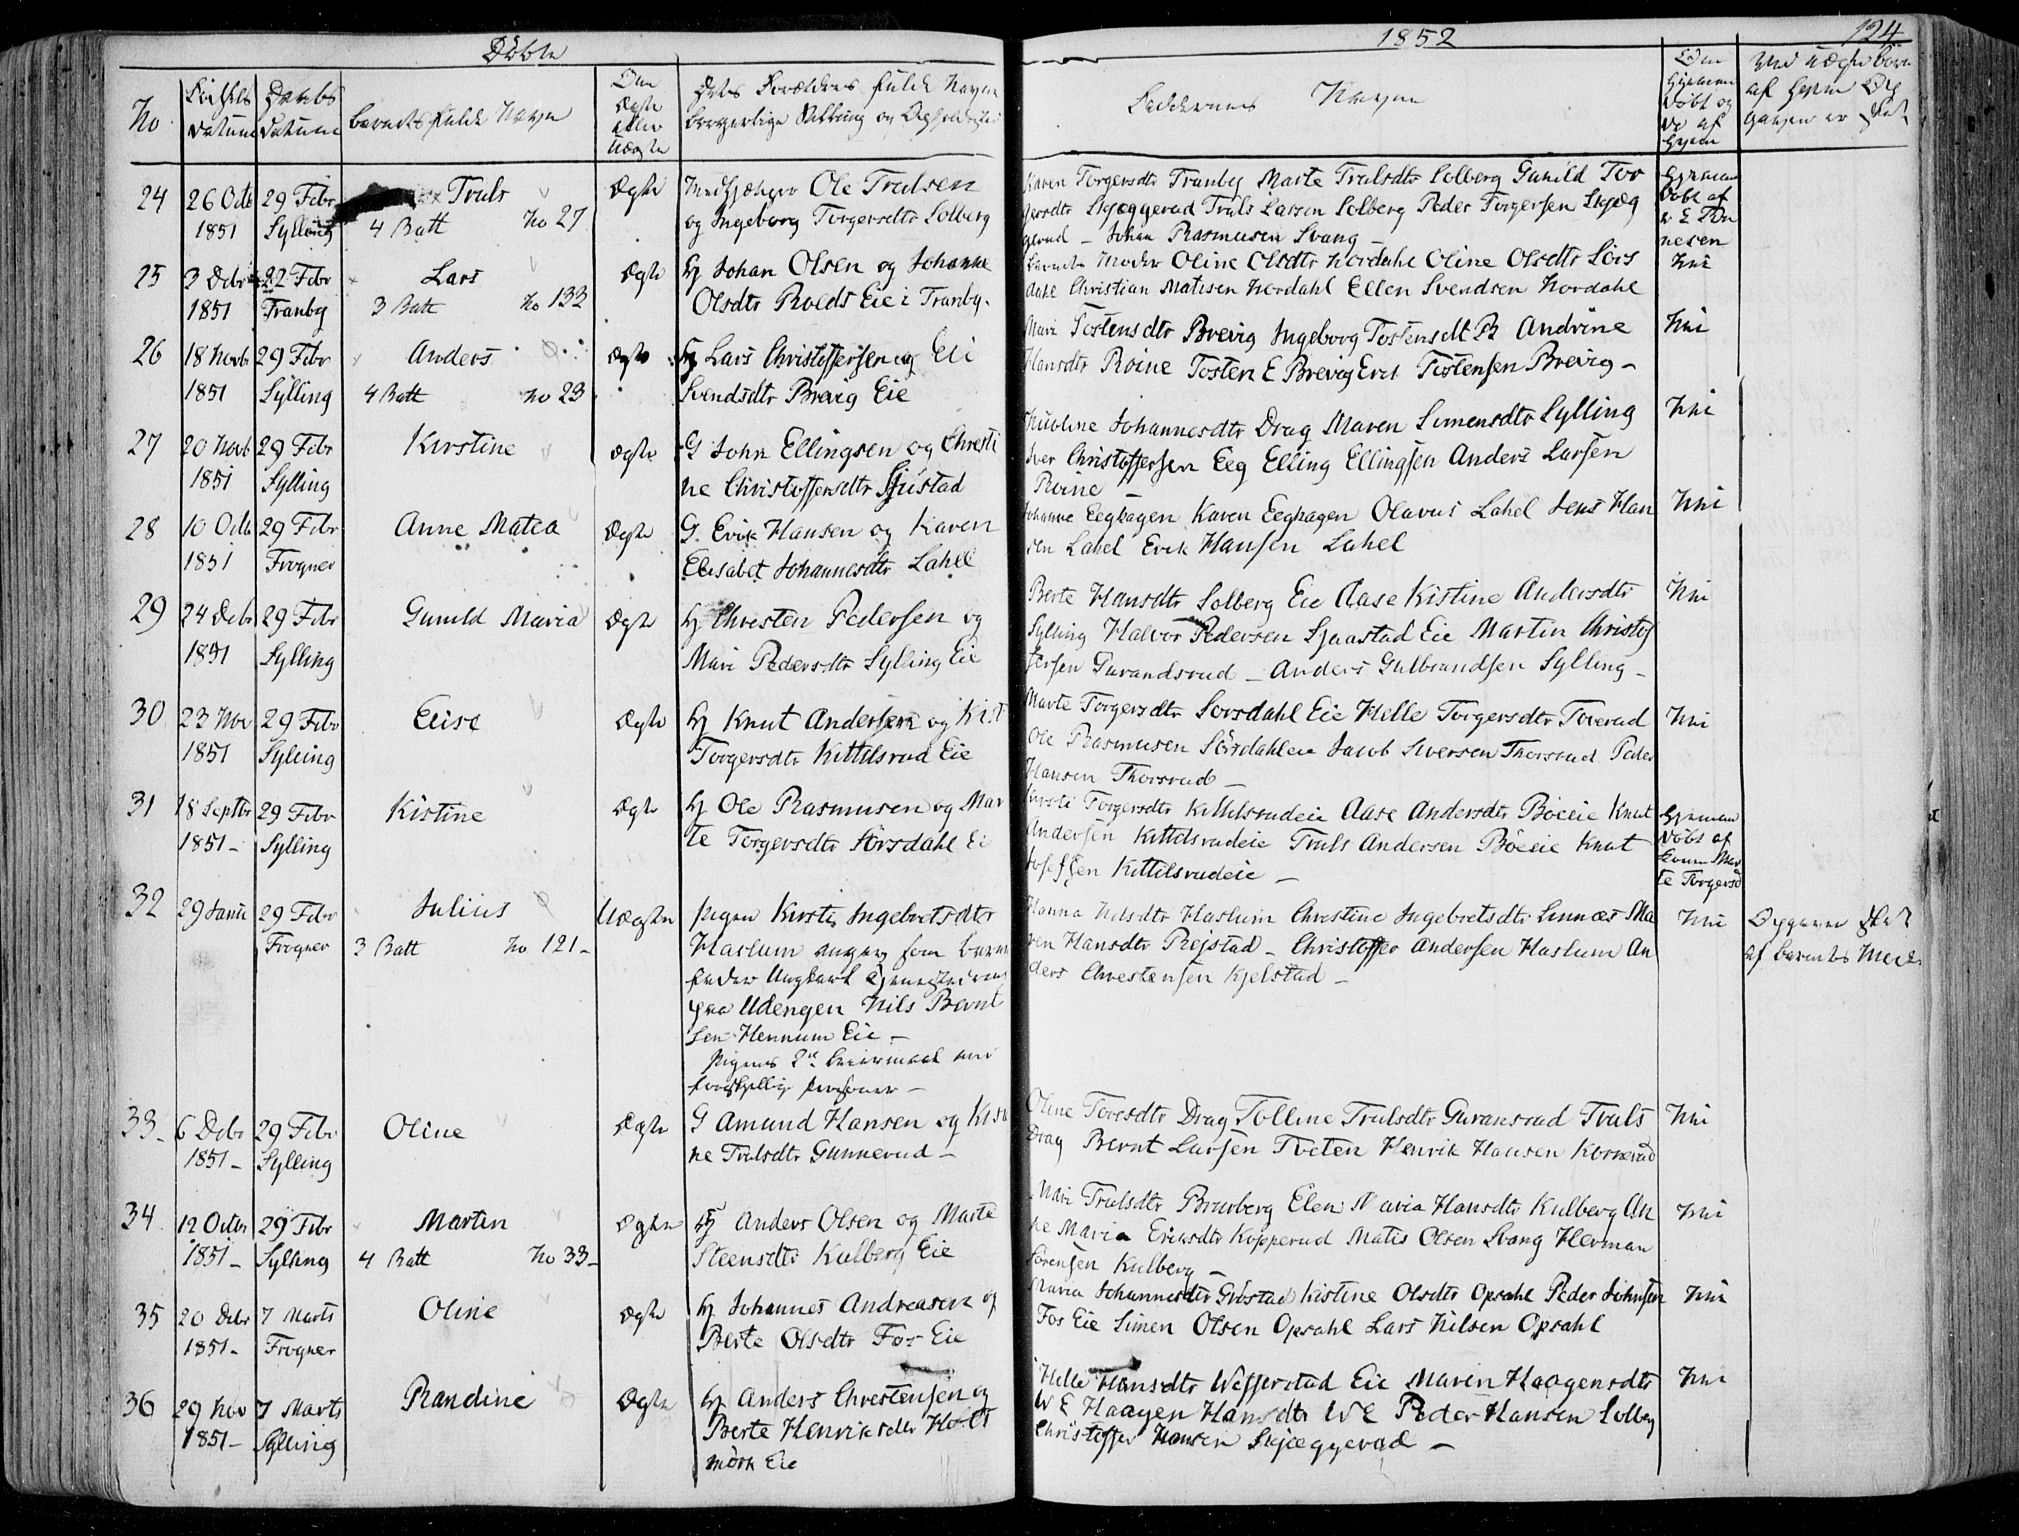 Døbte
1852
124
No
Datum
Datum
Barnets fulde Navn
Om
Ægte
eller
Uægte
Faddernes Navne
Om
Hjemme
døbt og
24
26 Octb
1851
29 Febr
Sylling
Truls
4 Batt No 27
Ægte
Ole Trulsen
og Ingeborg Torgersdtr Solberg
Karen Torgersdtr Tranby Marte Trulsdtr Solberg Gunild Tor
gersdtr Skjæggerud Truls Larsen Solberg Peder Torgersen Skjæg
gerud – Johan Rasmusen Svang –
25
3 Debr
1851
22 Febr
Tranby
Lars
3 Batt No 133
Ægte
Hj Johan Olsen og Johanne
Olsdtr Eie i Tranby.
Barnets Moder Oline Olsdtr Nordahl Oline Olsdtr Sørs
dahl Christian Matisen Nordahl Ellen Svendsen Nordahl
Nei
26
18 Novb
1851
29 Febr
Sylling
Anders
4 Batt No 23
Ægte
Hj Lars Christoffersen og Eli
Svendsdtr Brevig Eie
Mari Tostensdtr Brevig Ingeborg Tostensdt B Andrine
Hansdtr Roine Tosten E Brevig Erik Tostensen Brevig –
Nei
27
20 Novb
1851
29 Febr
Sylling
Kirstine
Ægte
G John Ellingsen og Christi
ne Christoffersdtr Sjåstad
Johannesdtr Drag Maren Simensdtr Sylling
Iver Christoffersen Eeg Elling Ellingsen Anders Larsen
Roine –
Nei
28
10 Octb
1851
29 Febr
Frogner
Anne Matea
Ægte
G. Erik Hansen og Karen
Elisabet Johannesdtr Lahell
Johanne Eeghagen Karen Eeghagen Olavus Lahel Jens Han
sen Lahel Erik Hansen Lahel
Nei
29
24 Debr
1851
29 Febr
Sylling
Gunild Maria
Ægte
Hj Christen Pedersen og
Mari Pedersdtr Sylling Eie
Berte Hansdtr Solberg Eie Aase Kistine Andersdtr
Sylling Halvor Pedersen Sjaastad Eie Martin Christof
fersen Guvandsrud – Anders Gulbrandsen Sylling –
Nei
30
23 Nov
1851
29 Febr
Sylling
Elise
Ægte
Hj Knut Andersen og Kist
Torgersdtr Kittilsrud Eie
Marte Torgersdtr Sørsdahl Eie Helle Torgersdtr Toverud
Ole Rasmusen Sørsdahleie Jacob Siversen Thorsrud Peder
Hansen Thorsrud –
Nei
31
18 Septbr
1851 –
29 Febr
Sylling
Kistine
Ægte
Hj Ole Rasmusen og Mar
te Torgersdtr Sørsdahl Ei
Kirsti Torgersdtr Kittilsrudeie Aase Andersdtr Böeeie Knut
Andersen Kittilsrudeie Truls Andersen Böeeie Knut
Josefsen Kittilsrudeie –
Hjemme
døbt af
Mar
te Torgersd
32
29 Janu
29 Febr
Frogner
Julius
3 Batt No 121 –
Uægte
Pigen Kirsti Ingebretsdtr
Haslum angav som barne
fader Ungkarl
fra Udengen Nils Bernt
sen Hennum Eie –
Pigens 2de Leiermaal med
forskjellige personer –
Hanna Nilsdtr Haslum Christine Ingebretsdtr Linnæs Ma
ren Hansdtr Rejstad – Christoffer Andersen Haslum An
ders Christensen Kjelstad –
Nei
Opgaven
af barnets
33 –
6 Debr
1851 –
29 Febr
Sylling
Oline
Ægte
G Amund Hansen og Kisti
ne Trulsdtr Gunnerud –
Oline Toresdtr Drag Tolline Trulsdtr Guransrud Truls
Drag Bernt Larsen Tveten Henrik Hansen Kornerud
Nei
34
12 Octbr
1851 –
29 Febr
Sylling
Martin
4 Batt No 33 –
Ægte
Hj Anders Olsen og Marte
Steensdtr Kulberg Eie
Mari Trulsdtr Brurberg Elen Maria Hansdtr Kulberg An
ne Maria Eriksdtr Kopperud Matis Olsen Svang Herman
Sørensen Kulberg –
Nei
35
20 Debr
1851 –
7 Marts
Frogner
Oline
Ægte
Hj Johannes Andreasen og
Berte Olsdtr Fos Eie
Maria Johannesdtr Gröstad Kistine Olsdtr Opsahl Peder Johnsen
Fos Eie Simen Olsen Opsahl Lars Nilsen Opsahl
Nei
36
29 Nov
1851 –
7 Marts
Sylling
Randine
Ægte
Hj Anders Christensen og
Berte Henriksdtr Holt
mörk Eie
Helle Hansdtr Wefferstad Eie Maren Haagensdtr
W E Haagen Hansdtr W E Peder Hansen Solberg
Christoffer Hansen Skjæggerud –
Nei